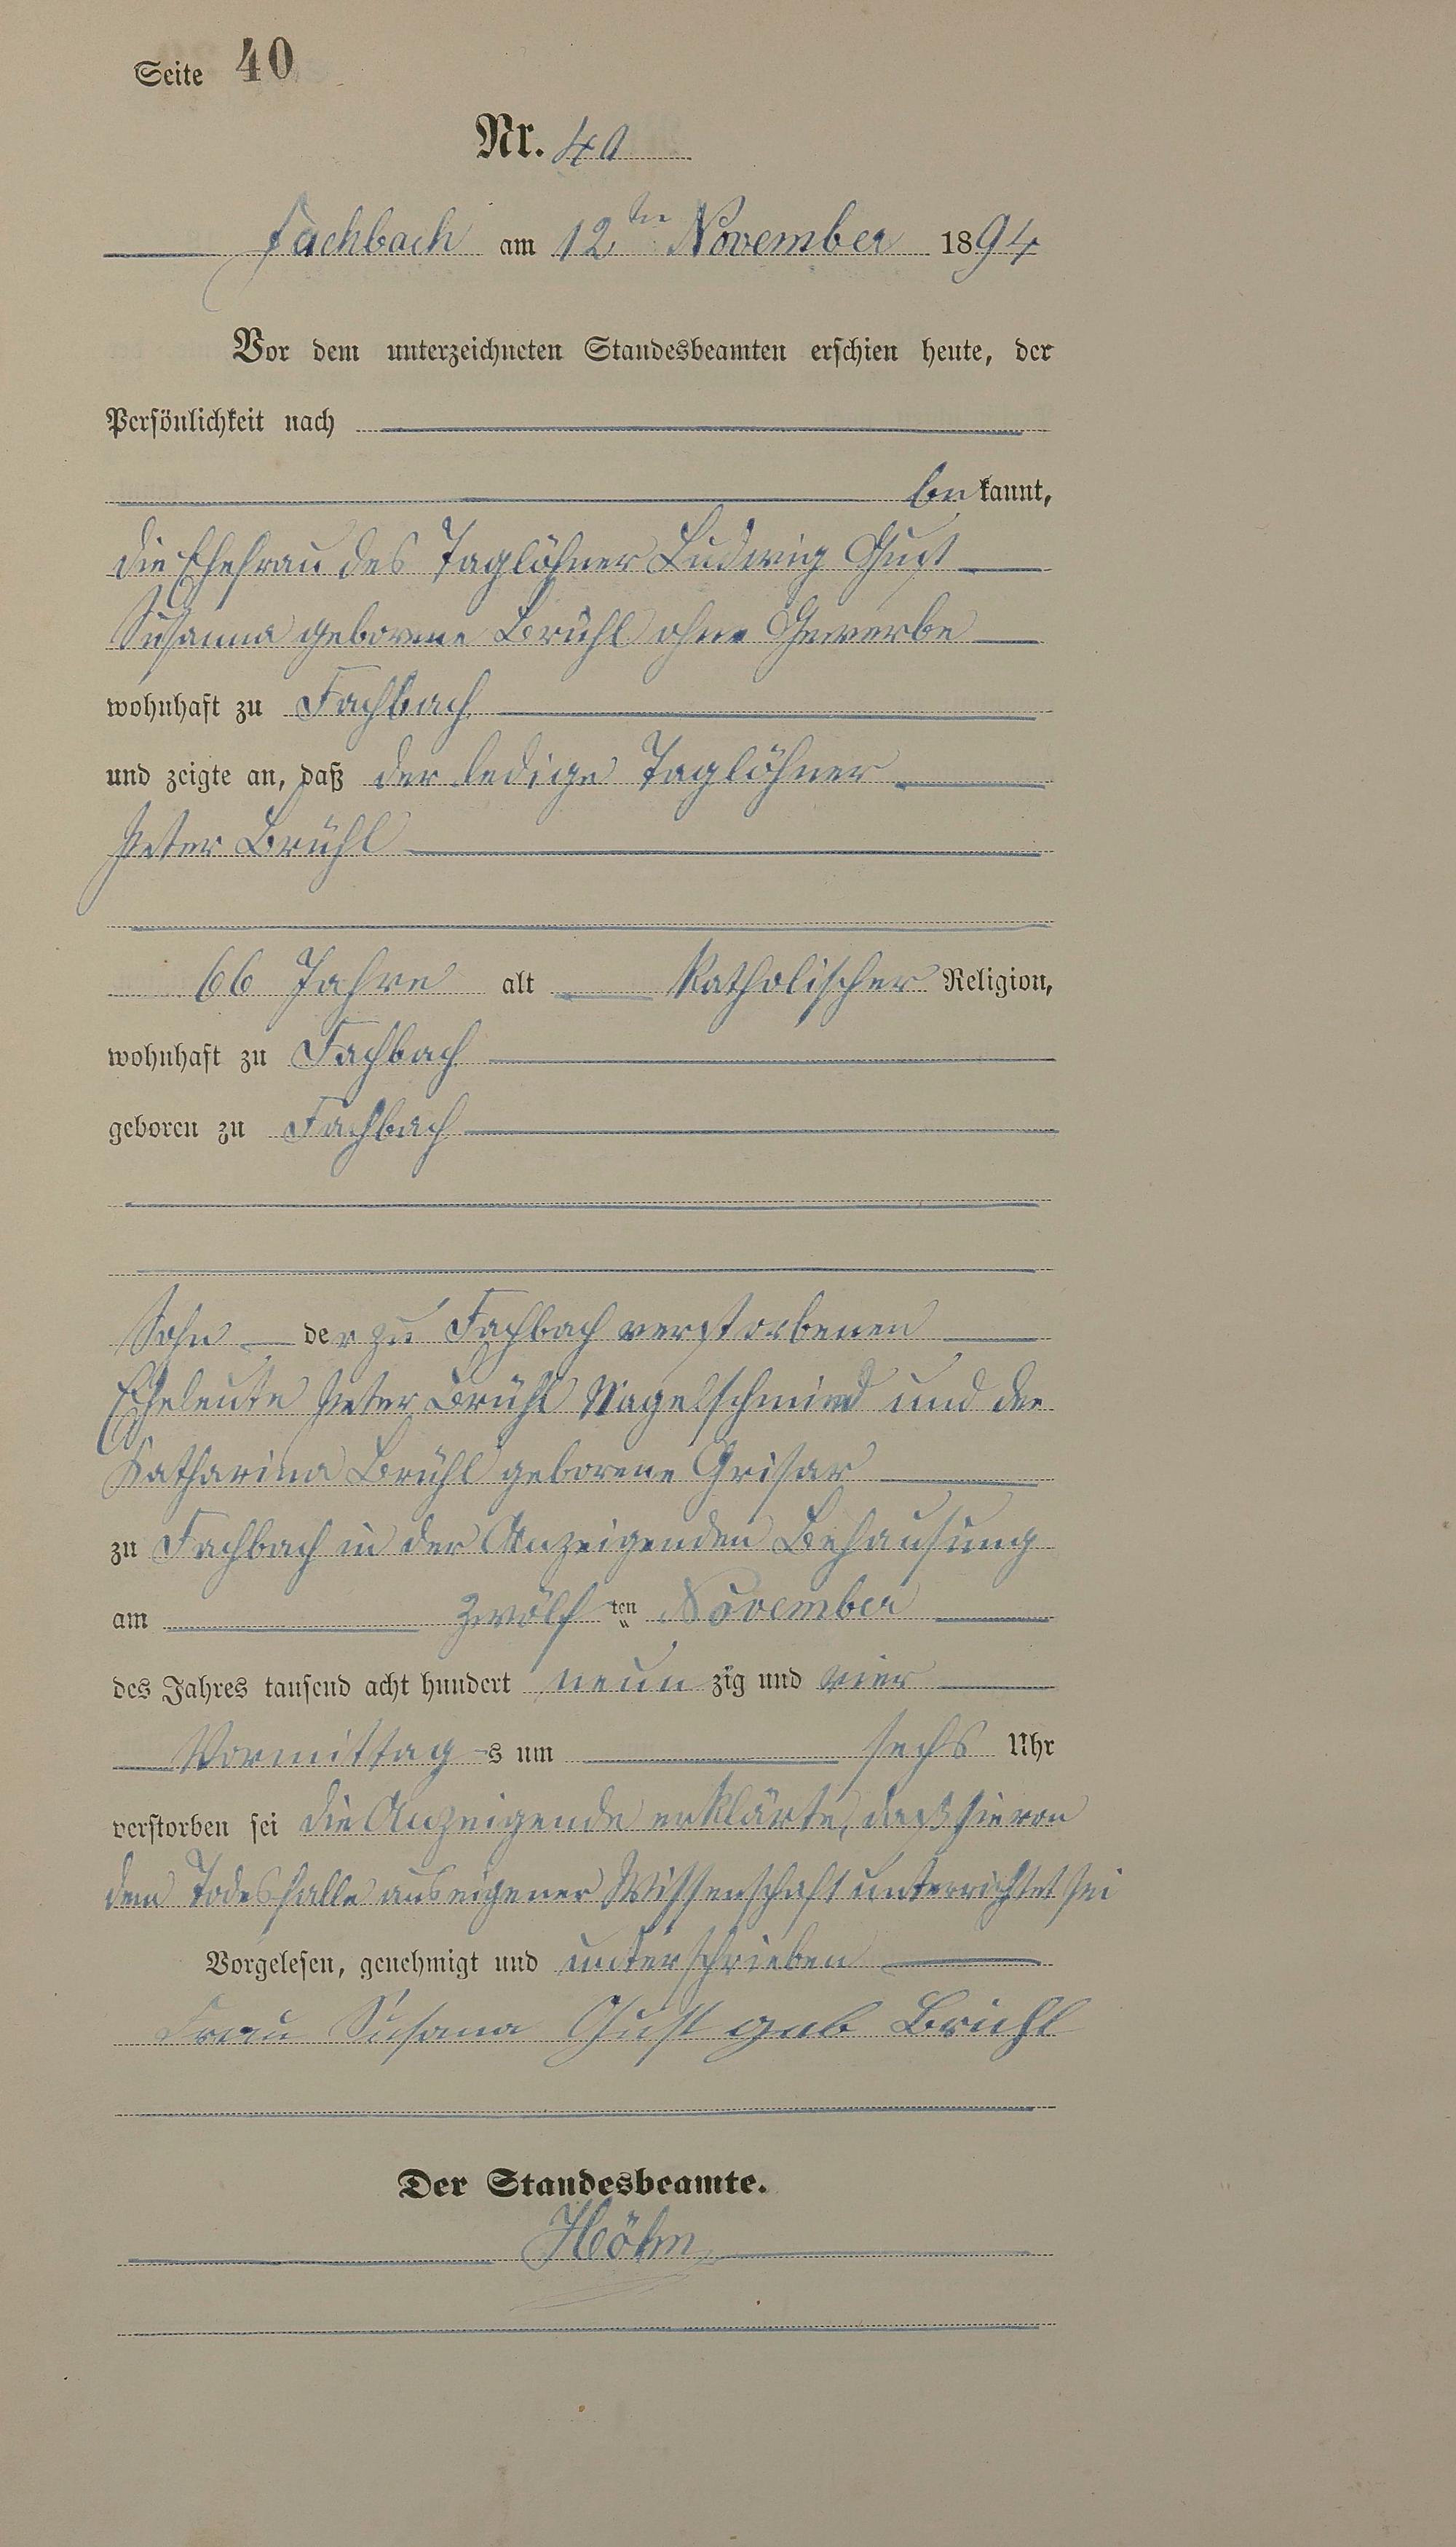 Seite 40
Nr. 40
Fachbach am 12ten November 1894
Vor dem unterzeichneten Standesbeamten erschien heute, der
Persönlichkeit nach
bekannt,
die Ehefrau des Taglöhner Ludwig Gust
Susanna geborene Brühl ohne Gewerbe
wohnhaft zu Fachbach
und zeigte an, daß der ledige Taglöhner
Peter Brühl
66 Jahre alt Katholischer Religion,
wohnhaft zu Fachbach
geboren zu Fachbach
Sohn der zu Fachbach verstorbenen
Eheleute Peter Brühl Nagelschmied und der
Katharina Brühl geborene Grisar
zu Fachbach in der Anzeigenden Behausung
am zwölf ten November
des Jahres tausend acht hundert neun zig und vier
Vormittag s um sechs Uhr
verstorben sei die Anzeigende erklärte, daß sie von
dem Todesfalle aus eigener Wissenschaft unterrichtet sei
Vorgelesen, genehmigt und unterschrieben
Frau Susana Gust geb Brühl
Der Standesbeamte.
Höhn